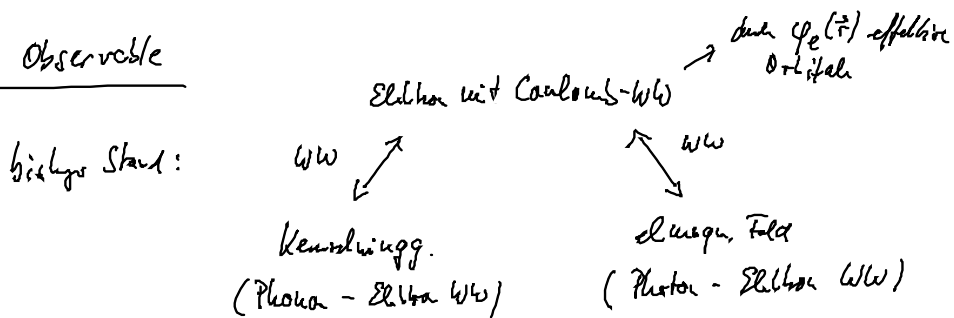 Observable
durch φₑ(r⃗) effektive
Orbitale
Elektron mit Coulomb-WW
bisheriger Stand:
WW
WW
Kernschwingg.
elmagn. Feld
(Phonon - Elektron WW)
(Photon - Elektron WW)